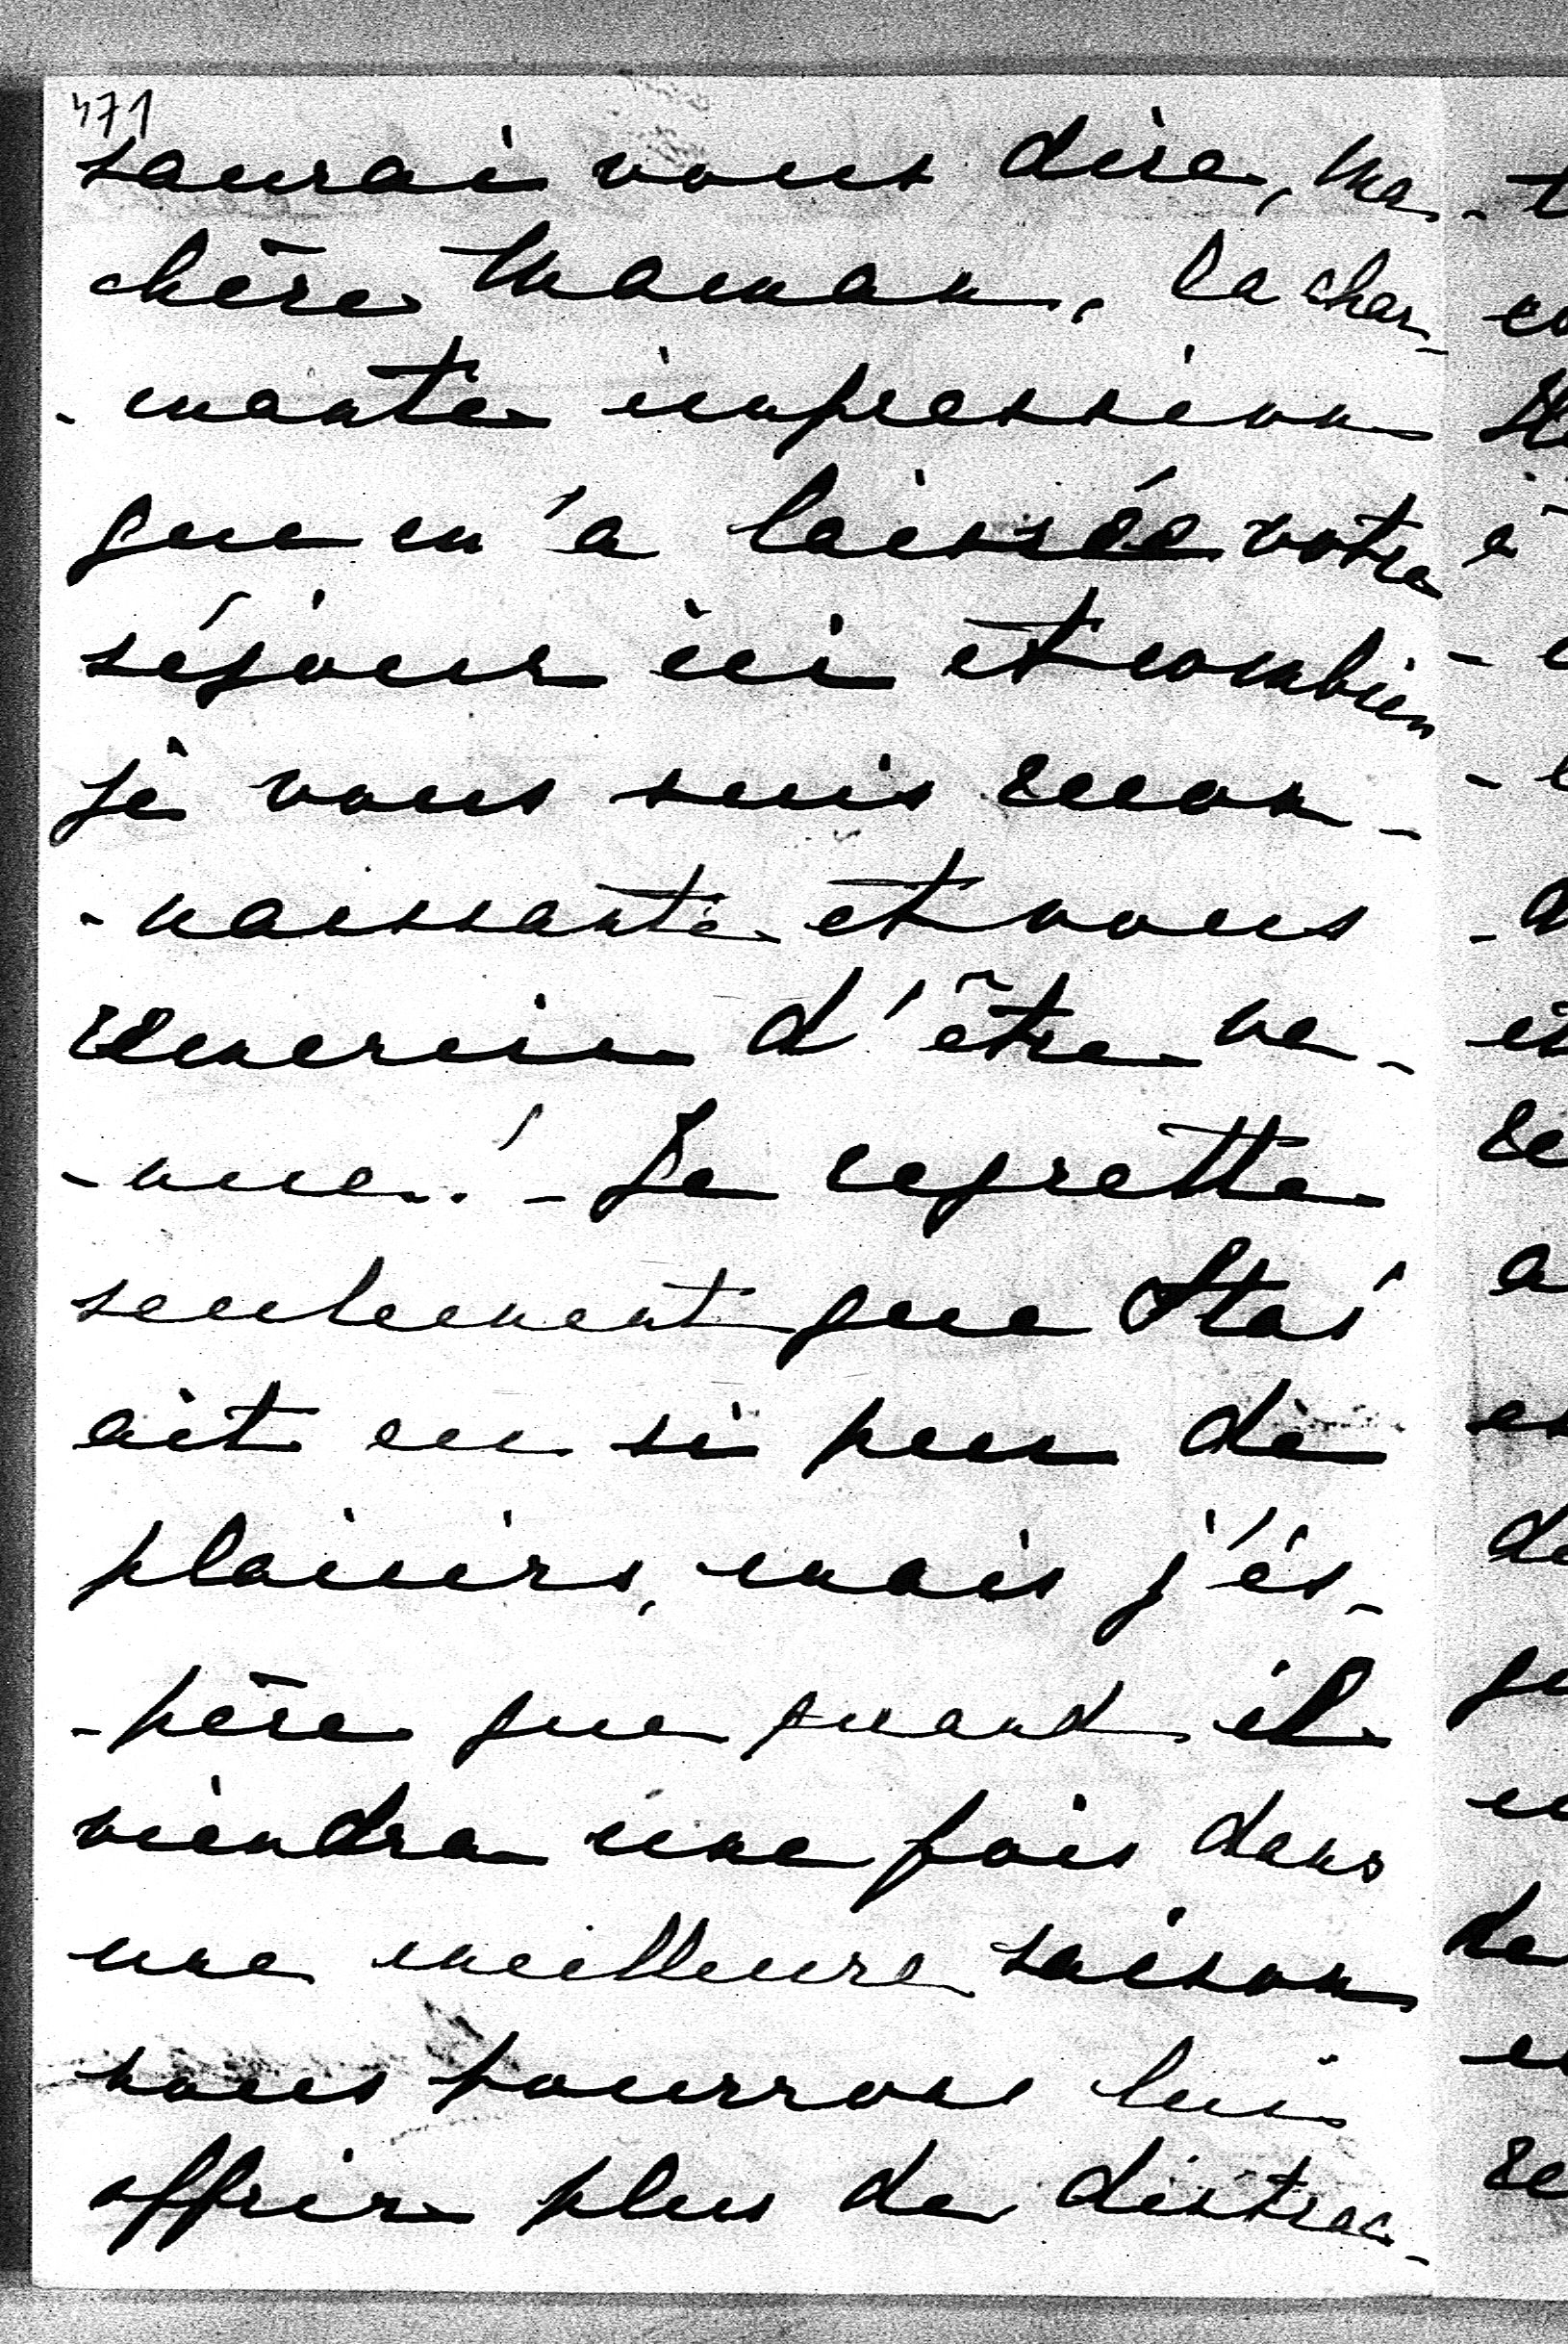 471
saurai vous dire, ma
chère Maman, la char-
-mante impression
que m'a laissée votre
séjour ici et combien
je vous suis recon-
-naissante et vous
remercie d'être ve-
-nue! - Je regrette
seulement que Stas
ait eu si peu de
plaisirs, mais j'és-
-père que quand il
viendra une fois dans
une meilleure saison
nous pourrons lui
offrir plus de distrac-